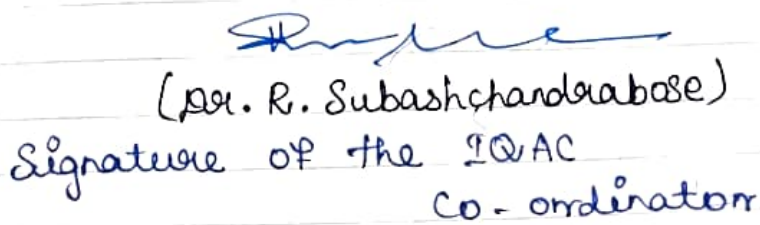 (Dr. R. Subashchandrabose)
Signature of the IQAC
Co-ordinator